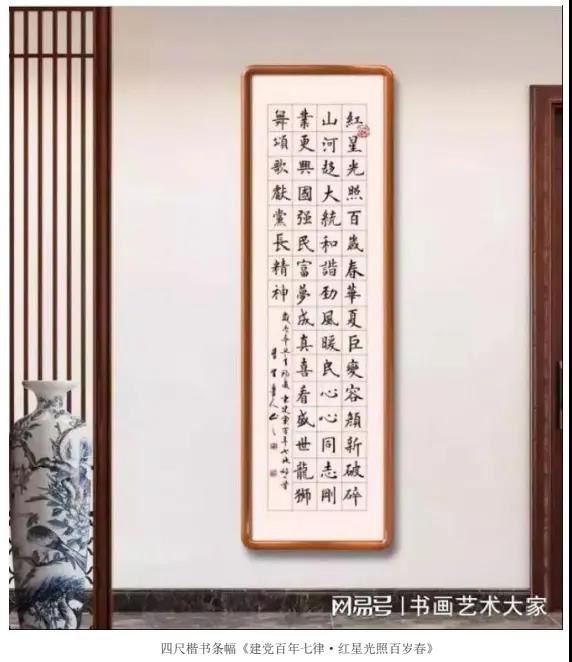 紅星光照百歲春華夏巨變容顏新破碎
山河趍大統和諧勁風暖民心心同志剛
業更興國强民富夢成真喜看盛世龍獅
舞頌歌獻黨長精神
歲在辛丑年 建黨百年七律
网易号 | 书画艺术大家
四尺楷书条幅《建党百年七律·红星光照百岁春》